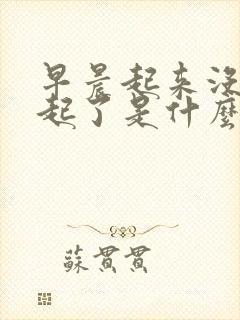 早晨起来没
起了是什麼
蘇貫貫